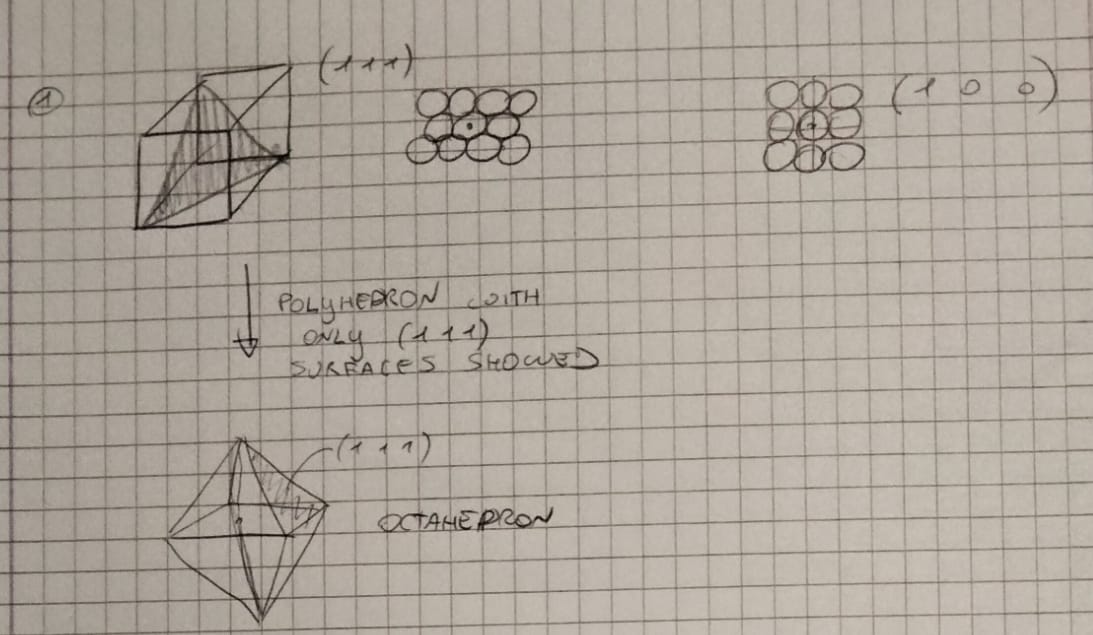 1
(111)
(1 0 0)
POLYHEDRON WITH
ONLY (111)
SURFACES SHOWED
(111)
OCTAHEDRON